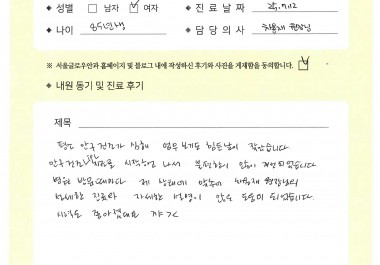 ◆ 성별 □ 남자 ☑ 여자 ◆ 진료날짜 25.7.12
◆ 나이 85년생 ◆ 담당의사 원장님
※ 서울글로우안과 홈페이지 및 블로그 내에 작성하신 후기와 사진을 게재함을 동의합니다. ☑
◆ 내원 동기 및 진료 후기
제목
평소 안구건조가 심해 업무 보기도 힘든날이 많았습니다
안구건조 치료를 시작하고 나서 불편함이 많이 개선되었습니다
병원 방문때마다 제 상태에 맞추어 원장님의
섬세한 진료와 자세한 설명이 많은 도움이 되었습니다.
시력도 좋아졌네요